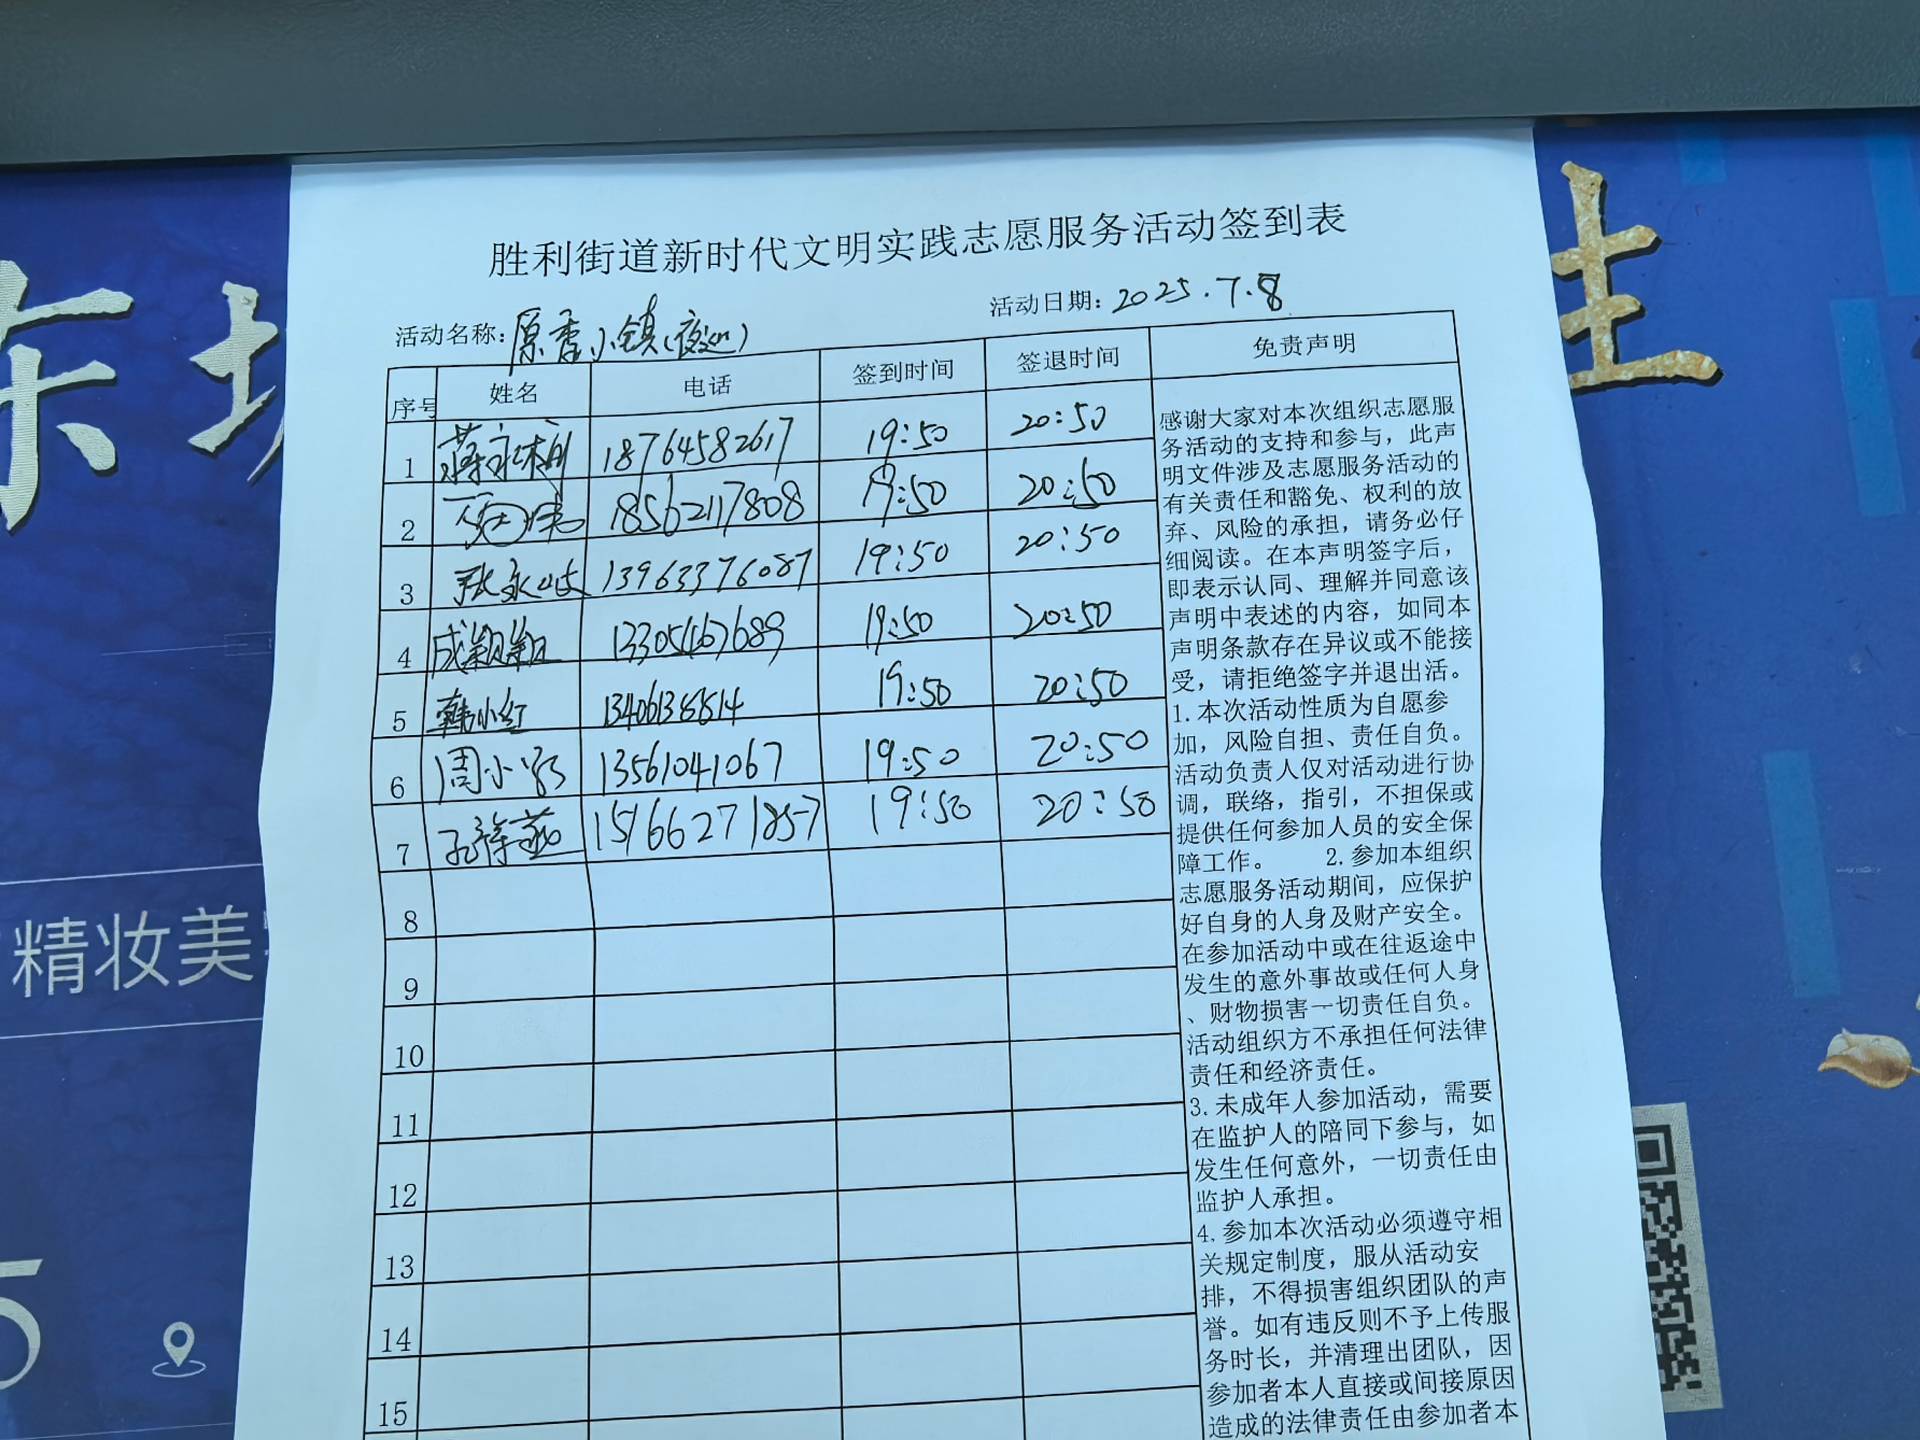 胜利街道新时代文明实践志愿服务活动签到表
活动名称：原香小镇（夜巡） 活动日期：2025.7.8
序号 姓名 电话 签到时间 签退时间 免责声明
1 18764582617 19:50 20:50
2 18562117808 19:50 20:50
3 张永岐 13963376087 19:50 20:50
4 成颖颖 13305467689 19:50 20:50
5 韩小红 19:50 20:50
6 周小 13561041067 19:50 20:50
7 孔祥燕 15166271857 19:50 20:50
8
9
10
11
12
13
14
15
感谢大家对本次组织志愿服
务活动的支持和参与，此声
明文件涉及志愿服务活动的
有关责任和豁免、权利的放
弃、风险的承担，请务必仔
细阅读。在本声明签字后，
即表示认同、理解并同意该
声明中表述的内容，如同本
声明条款存在异议或不能接
受，请拒绝签字并退出活。
1.本次活动性质为自愿参
加，风险自担、责任自负。
活动负责人仅对活动进行协
调，联络，指引，不担保或
提供任何参加人员的安全保
障工作。 2.参加本组织
志愿服务活动期间，应保护
好自身的人身及财产安全。
在参加活动中或在往返途中
发生的意外事故或任何人身
、财物损害一切责任自负。
活动组织方不承担任何法律
责任和经济责任。
3.未成年人参加活动，需要
在监护人的陪同下参与，如
发生任何意外，一切责任由
监护人承担。
4.参加本次活动必须遵守相
关规定制度，服从活动安
排，不得损害组织团队的声
誉。如有违反则不予上传服
务时长，并清理出团队，因
参加者本人直接或间接原因
造成的法律责任由参加者本
东
生
精妆美
5